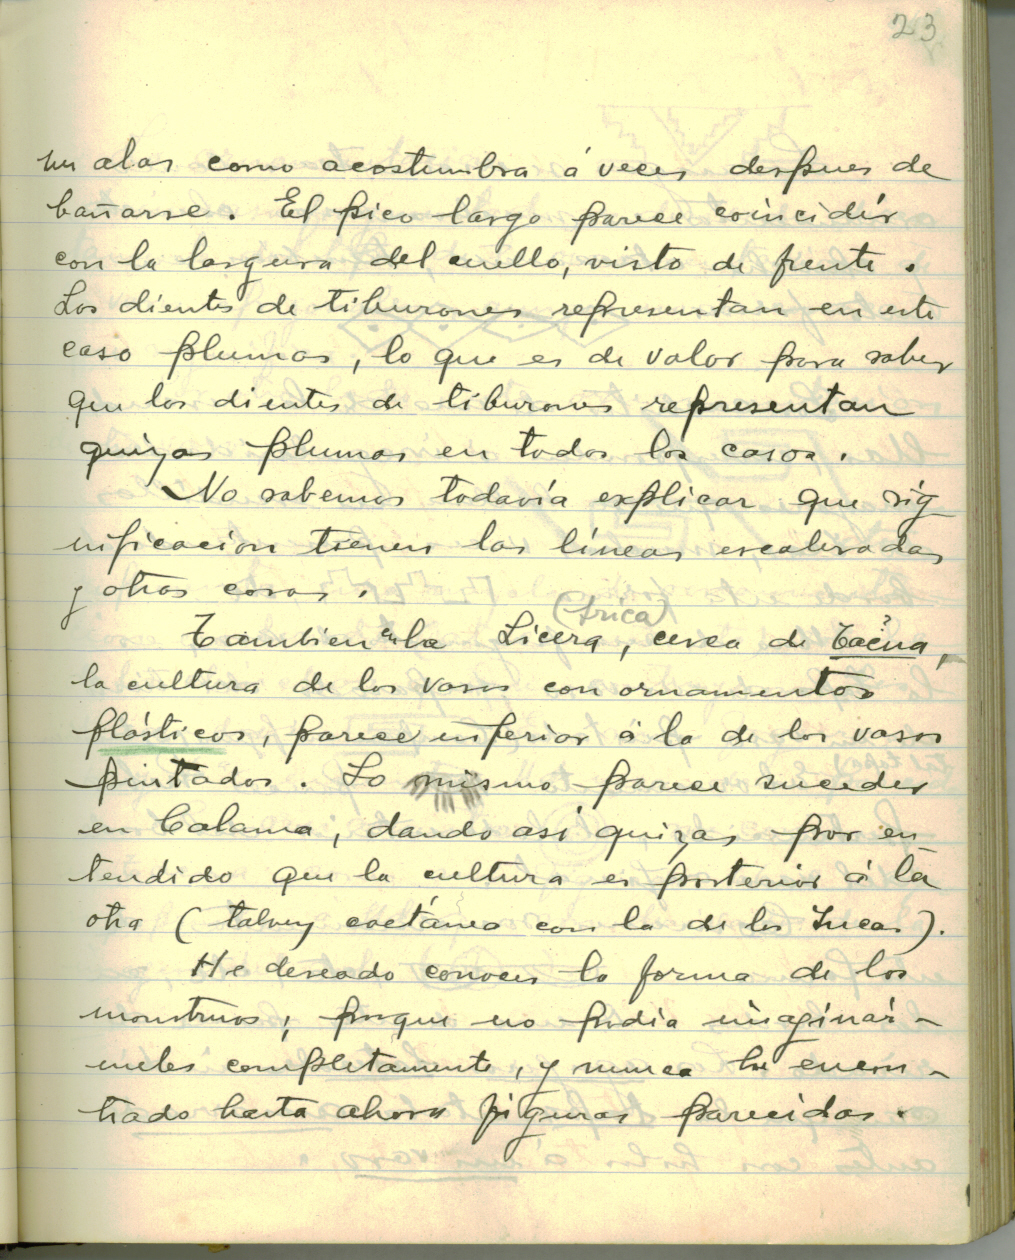 23
sus alas como acostumbra á veces despues de
bañarse. El pico largo parece coincidir
con la largura del cuello, visto de frente.
Los dientes de tiburones representan en este
caso plumas, lo que es de valor para saber
que los dientes de tiburones representan
quizas plumas en todos los casos.
No sabemos todavía explicar que sig
nificacion tienen las líneas escaleradas
y otras cosas.
(Arica)
Tambien en la Licera, cerca de Tacna,
la cultura de los vasos con ornamentos
plásticos, parece inferior á la de los vasos
pintados. Lo mismo parece suceder
en Calama, dando así quizas por en
tendido que la cultura es posterior á la
otra (talvez coetánea con la de los Incas).
He deseado conocer la forma de los
monstruos; porque no podía imaginár-
melos completamente, y nunca he encon-
trado hasta ahora figuras parecidas.